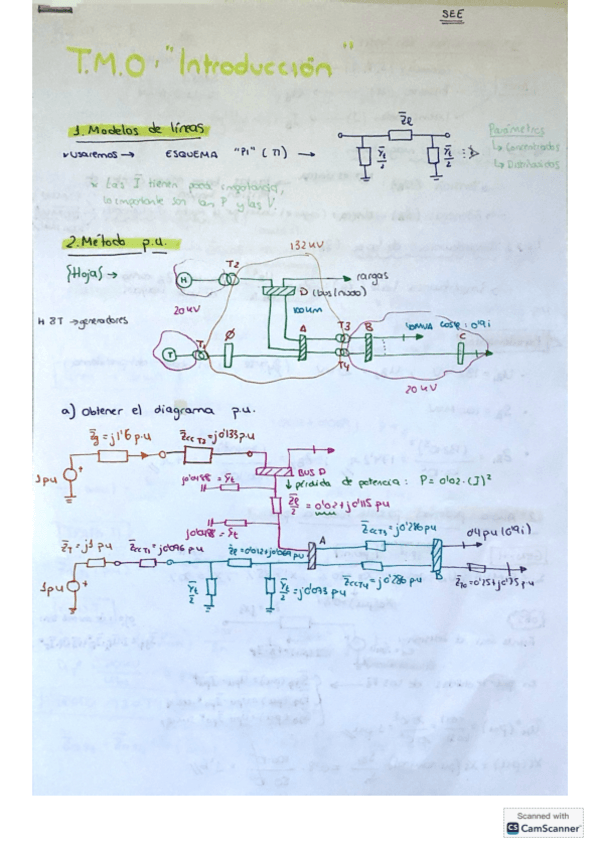 SEE
T.M.0: "Introducción"
1. Modelos de líneas
Usaremos → ESQUEMA "Pi" (π) →
Z̄ℓ
Ȳt/2
Ȳt/2
Parámetros
↳ Concentrados
↳ Distribuidos
Las I tienen poca importancia,
lo importante son las P y las V.
2. Método p.u.
{Hoja} →
132 kV
H
T2
cargas
D (bus/nodo)
20 kV
100 km
H y T → generadores
T
T1
Ø
A
T3
T4
B
40MVA cosφ: 0'9i
C
20 kV
a) Obtener el diagrama p.u.
Z̄g = j1'6 p.u
Z̄ccT2 = j0'135 p.u
1pu
BUS D
↓ pérdida de potencia: P = 0'02 · (I)²
= Ȳt
Z̄ℓ/2 = 0'02 + j0'115 pu
= Ȳt
Z̄T = j1 pu
Z̄ccT1 = j0'096 pu
Z̄ℓ = 0'012 + j0'069 pu
A
Z̄ccT3 = j0'286 pu
0'4 pu (0'9i)
1pu
Ȳt/2
Ȳt/2 = j0'073 pu
Z̄ccT4 = j0'286 pu
B
= 0'25 + j0'75 pu
Scanned with
CS CamScanner